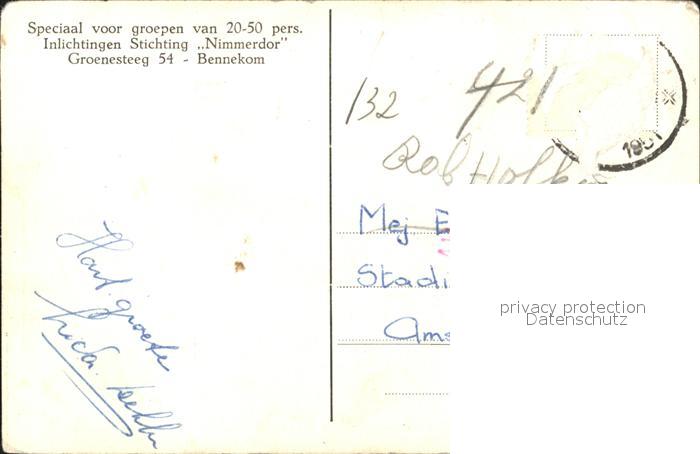 Speciaal voor groepen van 20-50 pers.
Inlichtingen Stichting „Nimmerdor"
Groenesteeg 54 - Bennekom
132
421
Rob
Mej E
Stadi
Ams
Hart. groete
privacy protection
Datenschutz